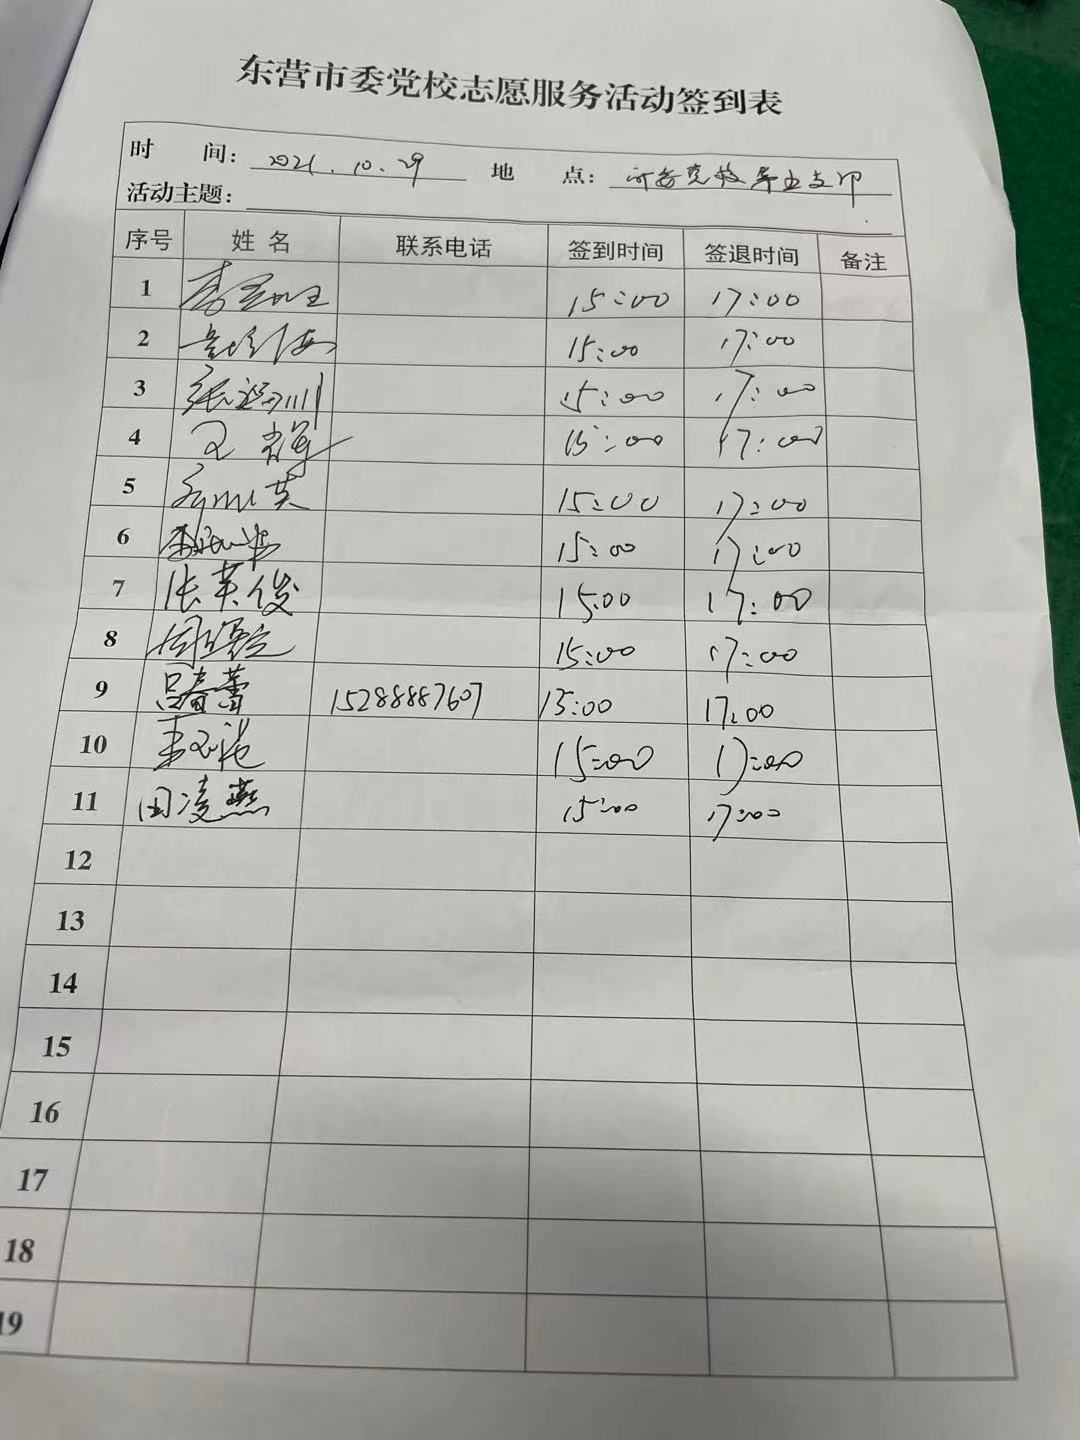 东营市委党校志愿服务活动签到表
时 间: 2021.10.29 地 点: 市委党校
活动主题:
序号 姓名 联系电话 签到时间 签退时间 备注
1 15:00 17:00
2 15:00 17:00
3 15:00 17:00
4 15:00 17:00
5 15:00 17:00
6 15:00 17:00
7 张英俊 15:00 17:00
8 15:00 17:00
9 吕春蕾 15288887607 15:00 17:00
10 15:00 17:00
11 田凌燕 15:00 17:00
12
13
14
15
16
17
18
19